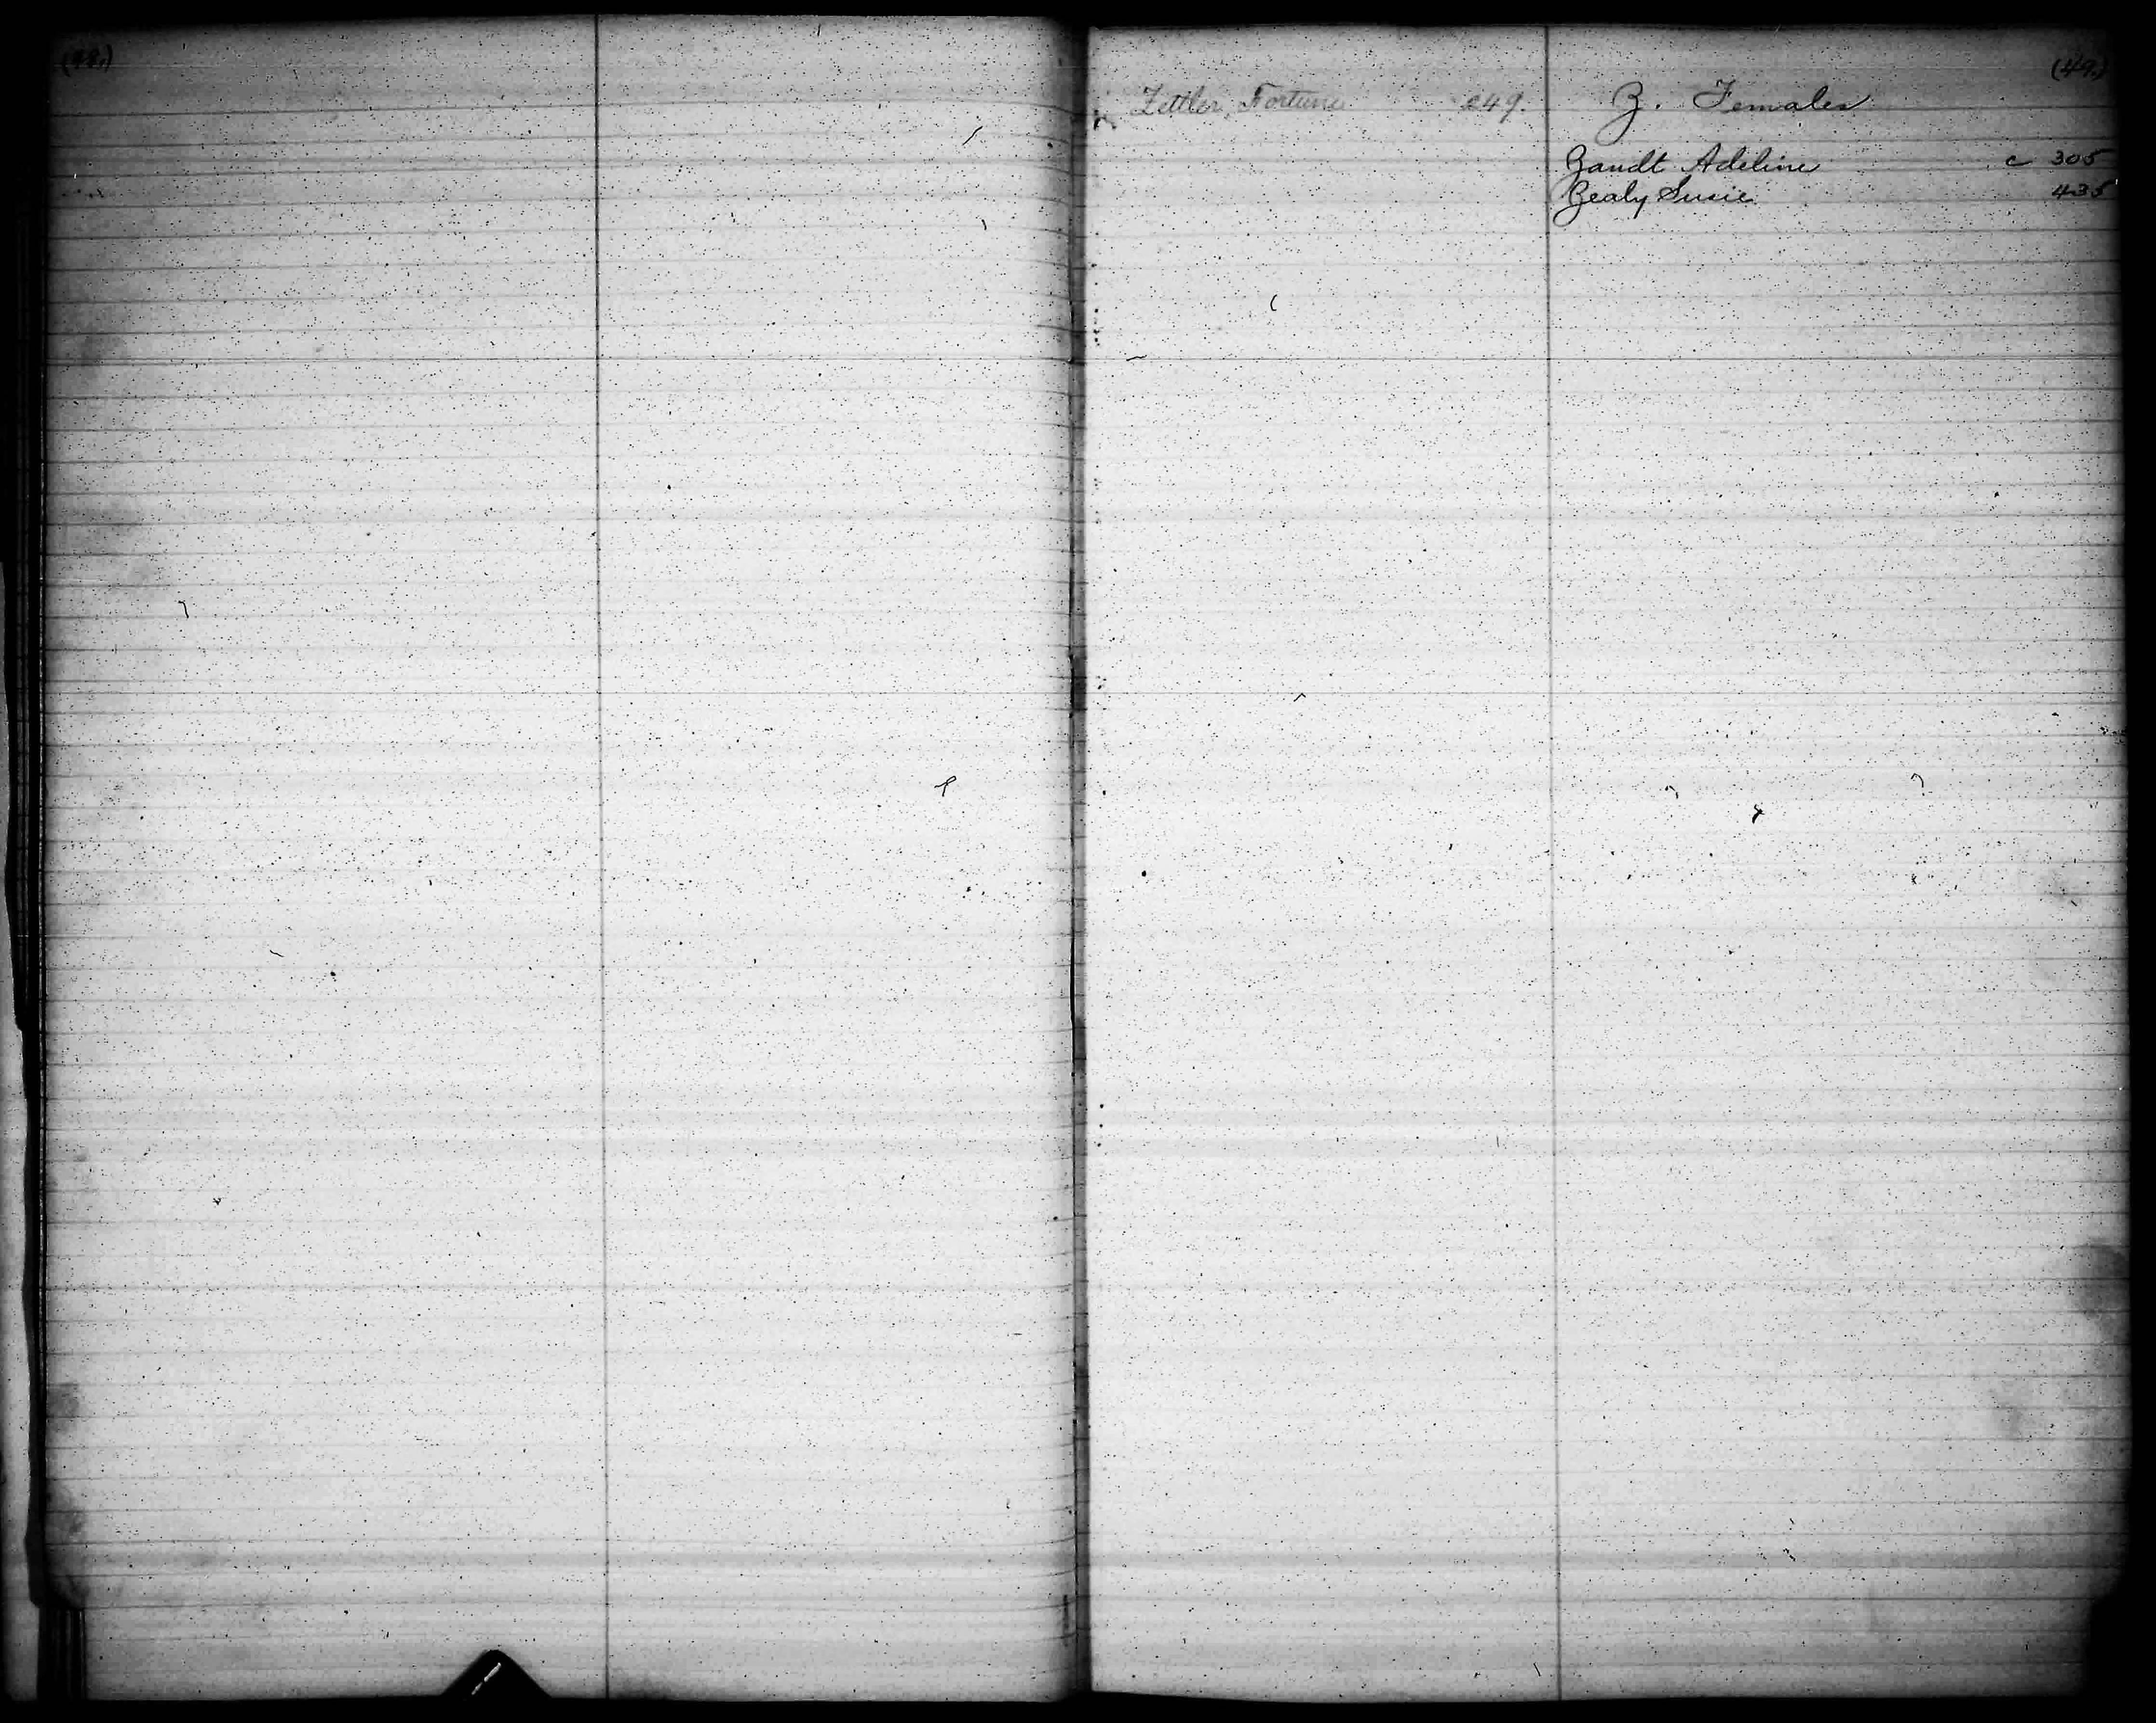 (48.)
(49.)
Zettler, Fortune 249.
Z. Females
Zandt Adeline c 305
Zealy Susie 435